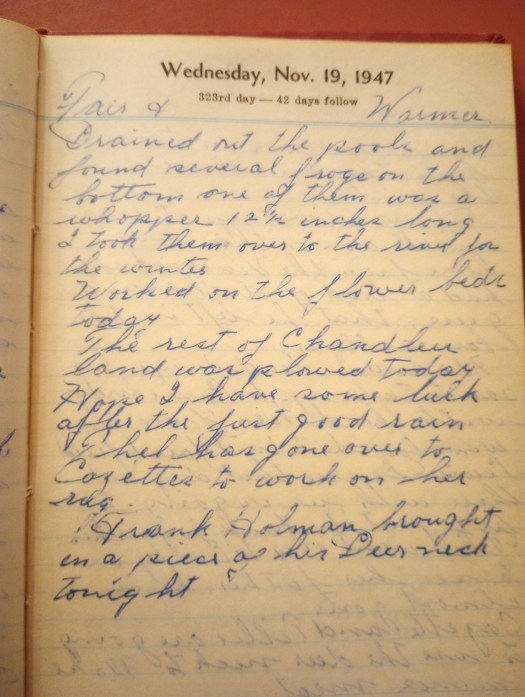 Wednesday, Nov. 19, 1947
323rd day — 42 days follow
Fair & Warmer
Drained out the pool and
found several frogs on the
bottom one of them was a
whopper 12 1/2 inches long
I took them over to the river for
the winter
Worked on the flower beds
today
The rest of Chandler
land was plowed today
Hope I have some luck
after the first good rain
Thel has gone over to
Cozettes to work on her
rug.
Frank Holman brought
in a piece of his Deer neck
tonight